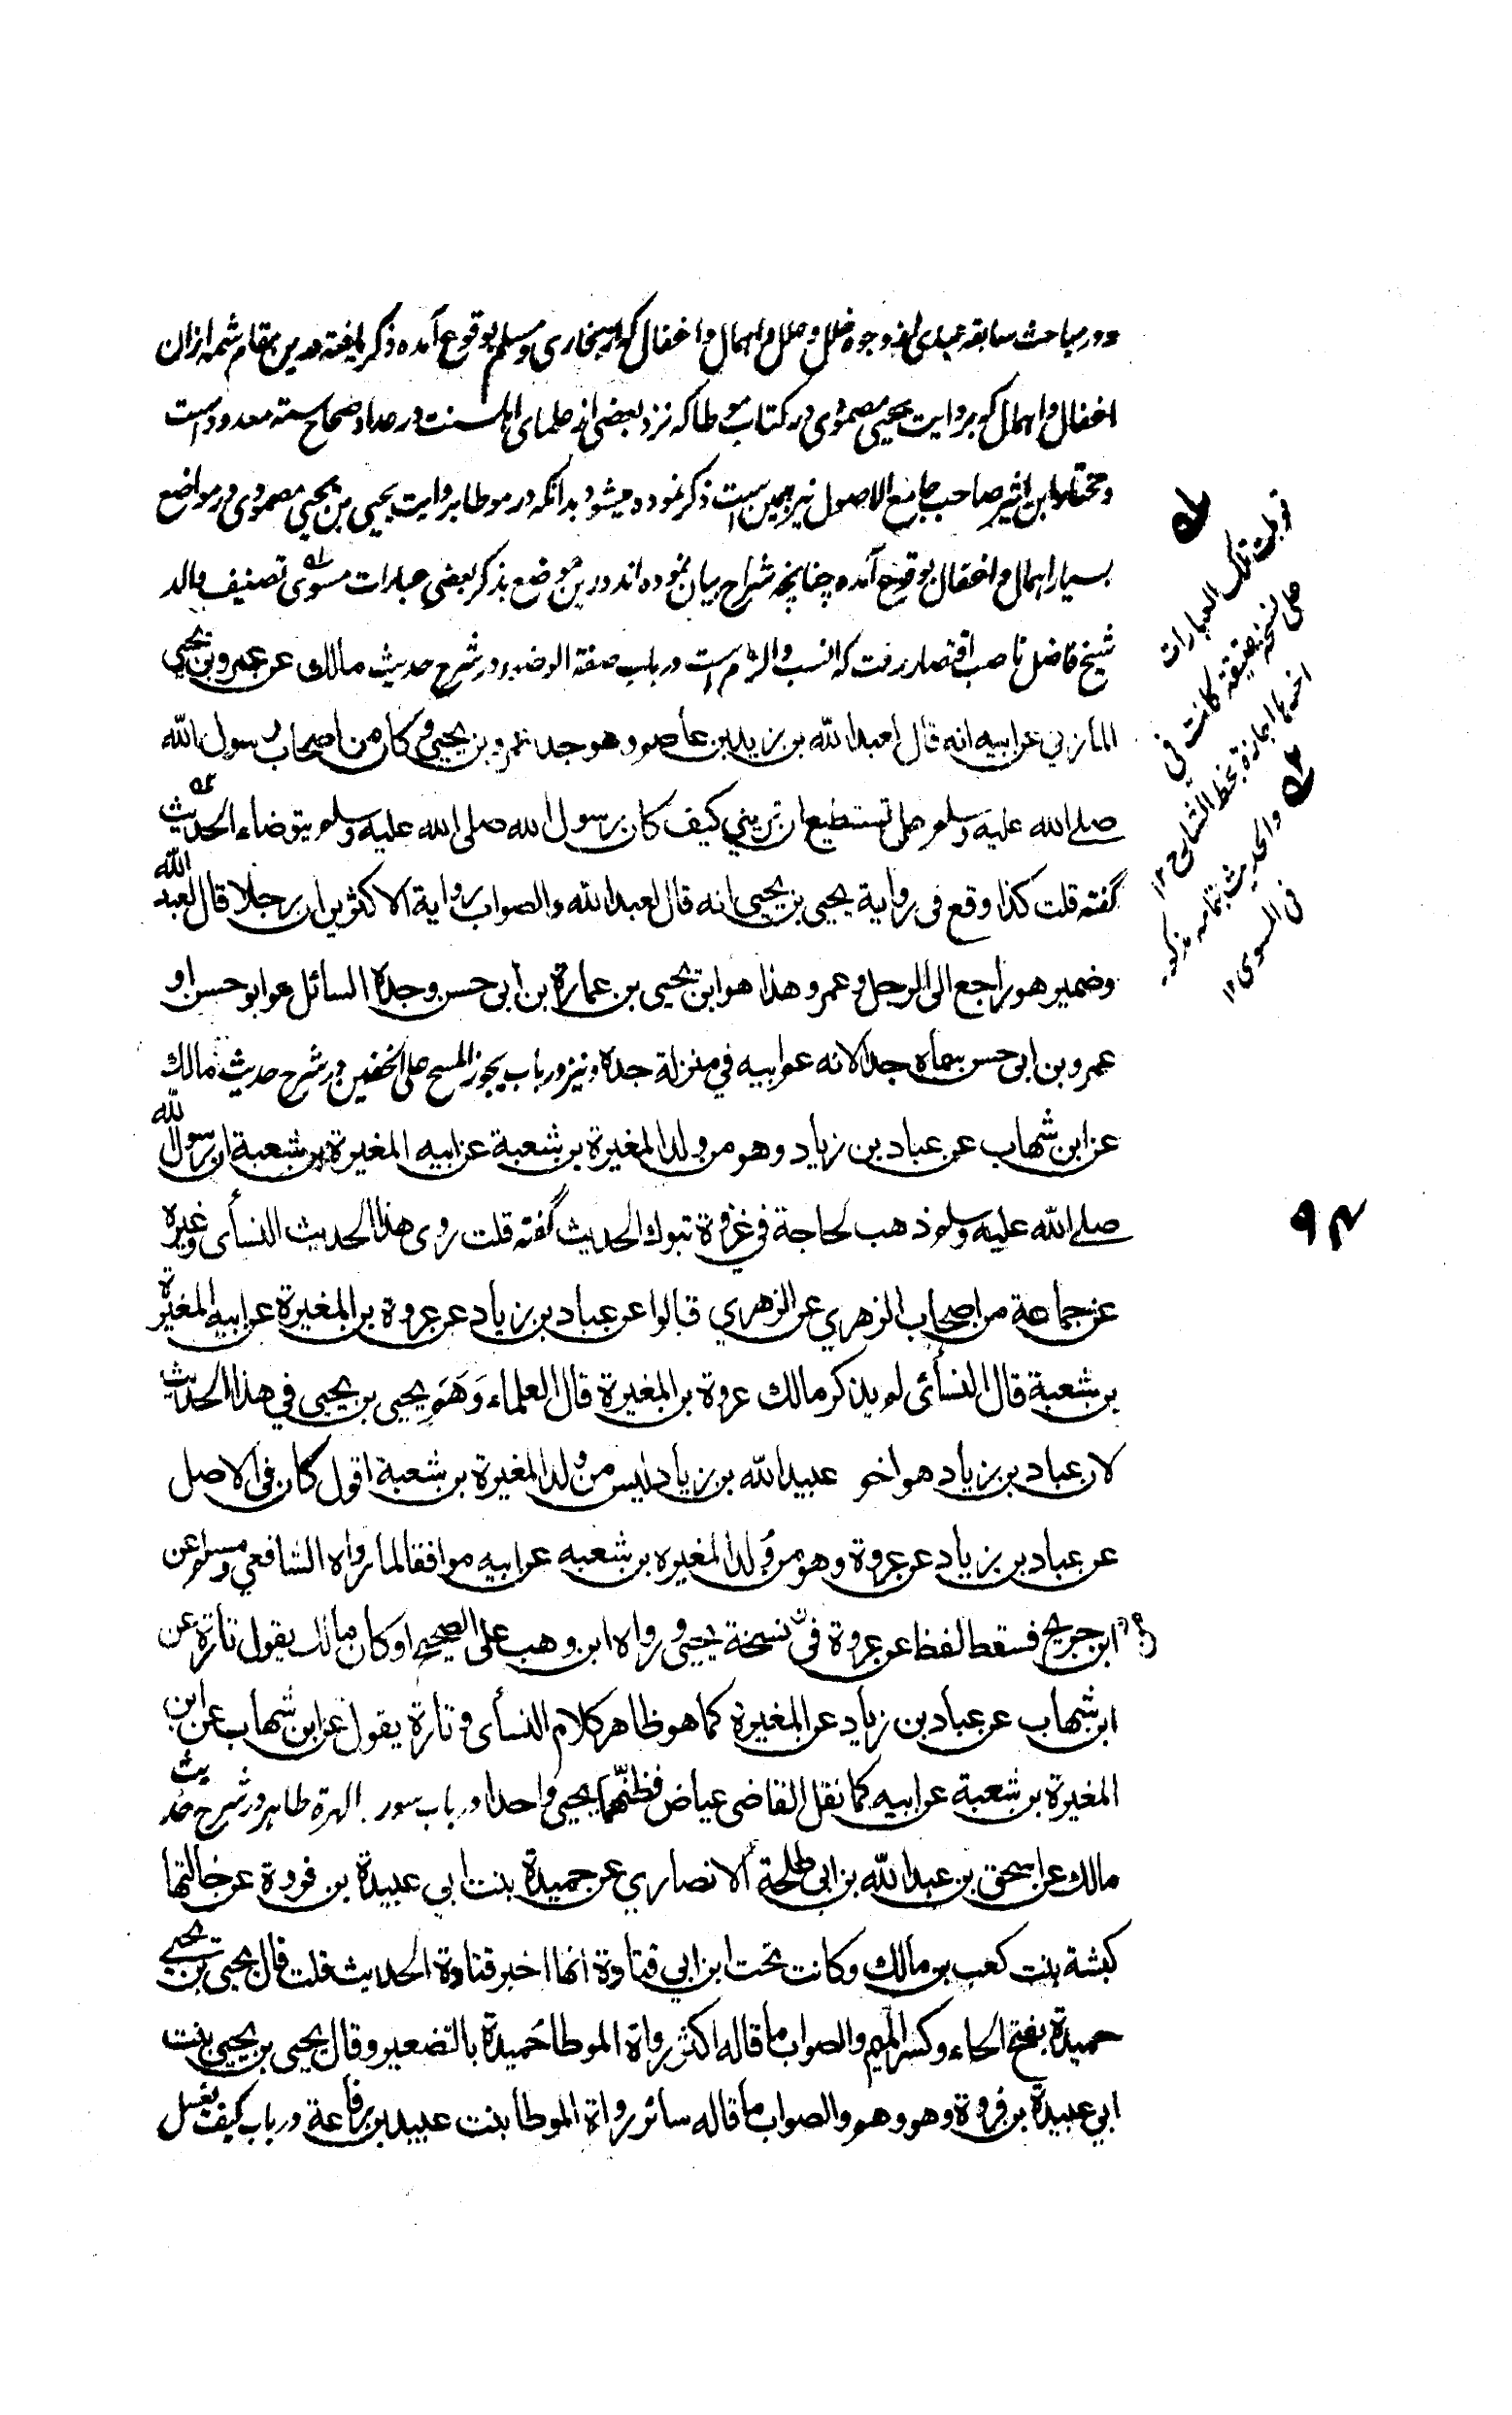 و در مباحث سابقه عبدی از وجوه خلل و علل و اهمال و اغفال که از بخاری و مسلم بوقوع آمده ذکر یافته درین مقام شمه ازان
اغفال و اهمال که بروایت یحیی مصمودی در کتاب موطا که نزد بعضی از علمای اهلسنت در عداد صحاح سته معدود است
و مختار ابن اثیر صاحب جامع الاصول نیز همین است ذکر نموده میشود بدانکه در موطا بروایت یحیی بن یحیی مصمودی در مواضع
بسیار اهمال و اغفال بوقوع آمده چنانچه شراح بیان نموده اند درین موضع بذکر بعضی عبارات مسوی تصنیف والد
شیخ فاضل ناصب اقتصار رفت که انسب و الزم است در باب صفة الوضوء در شرح حدیث مالك عن عمرو بن يحيى
المازني عن ابيه انه قال لعبد الله بن زيد بن عاصم وهو جد عمرو بن يحيى وكان من اصحاب رسول الله
صلى الله عليه وسلم هل تستطيع ان تريني كيف كان رسول الله صلى الله عليه وسلم يتوضاء الحديث
گفته قلت كذا وقع فى رواية يحيى بن يحيى انه قال لعبد الله والصواب رواية الاكثرين ان رجلا قال لعبد الله
وضمير هو راجع الى الرجل وعمرو هذا هو ابن يحيى بن عمارة بن أبى حسن وجده السائل هو ابو حسن او
عمرو بن ابى حسن سماه جدا لانه عم ابيه في منزلة جده ونیز در باب یجوز المسح علی الخفین در شرح حدیث مالك
عن ابن شهاب عن عباد بن زياد وهو من ولد المغيرة بن شعبة عن ابيه المغيرة بن شعبة ان رسول الله
صلى الله عليه وسلم ذهب لحاجة في غزوة تبوك الحديث گفته قلت روى هذا الحديث النسأى وغيره
عن جماعة من اصحاب الزهري عن الزهري قالوا عن عباد بن زياد عن عروة بن المغيرة عن ابيه المغيرة
بن شعبة قال النسأئى لم يذكر مالك عروة بن المغيرة قال العلماء وَهَمَ يحيى بن يحيى في هذا الحديث
لان عباد بن زياد هو اخو عبيد الله بن زياد ليس من ولد المغيرة بن شعبة اقول كان فى الاصل
عن عباد بن زياد عن عروة وهو من ولد المغيره بن شعبه عن ابيه موافقا لما رواه الشافعي ومسلم عن
ابن جريج فسقط لفظ عن عروة فى نسخة يحيى ورواه ابن وهب على الصحيح او كان مالك يقول تارة عن
ابن شهاب عن عباد بن زياد عن المغيرة كما هو ظاهر كلام النسأى وتارة يقول عن ابن شهاب عن ابن
المغيرة بن شعبة عن ابيه كما نقل القاضى عياض فظنّهما يحيى واحدا در باب سور الهرة طاهر در شرح حدیث
مالك عن اسحق بن عبد الله بن ابى طلحة الانصاري عن حميدة بنت ابي عبيدة بن فروة عن خالتها
كبشة بنت كعب بن مالك وكانت تحت ابن ابي قتادة انها اخبر قتادة الحديث قلت قال يحيى بن يحيى
حميدة بفتح الحاء وكسر الميم والصواب ما قاله اكثر رواة الموطا حُميدة بالتصغير وقال يحيى بن يحيى بنت
ابي عبيدة بن فروة وهو وهم والصواب ما قاله سائر رواة الموطا بنت عبيد بن رفاعة در باب كيف يغسل
قوبلت تلك العبارات
على نسخة عتيقة كانت في
اخرها اجازة بخط الشارح ١٢
والحديث بتمامه مذكور
فى المسوى ١٢
٩٢